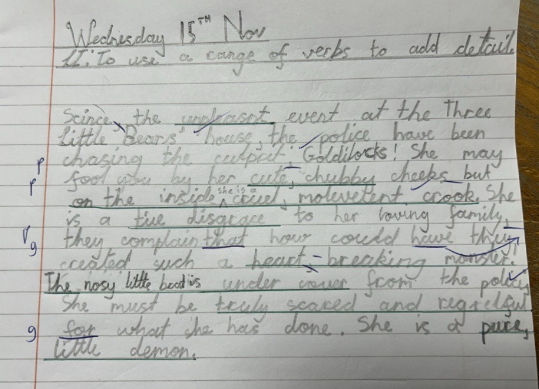 Wednesday 15TH Nov
LI: To use a range of verbs to add detail
Scince, the unpleasant event at the Three
Little Bears' house, the police have been
chasing the culprit; Goldilocks! She may
fool you by her cute, chubby cheeks but
on the inside she is a cruel, malevetent crook. She
is a true disgrace to her loving family,
they complain that how could have they
created such a heart-breaking monster!
The nosy little beat is under cover from the police,
She must be truly scared and regretful
for what she has done. She is a pure,
little demon.
p
p
g
g